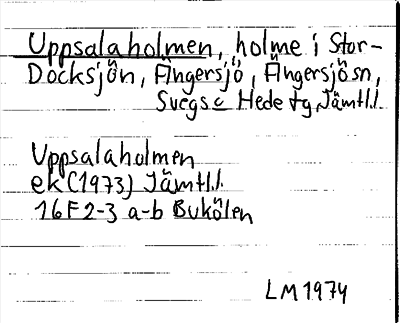 Uppsalaholmen, holme i Stor-
Docksjön, Ängersjö, Ängersjösn,
Svegs o Hede tg, Jämtl.l.
Uppsalaholmen
ek (1973) Jämtl.l.
16F 2-3 a-b Bukölen
LM 1974